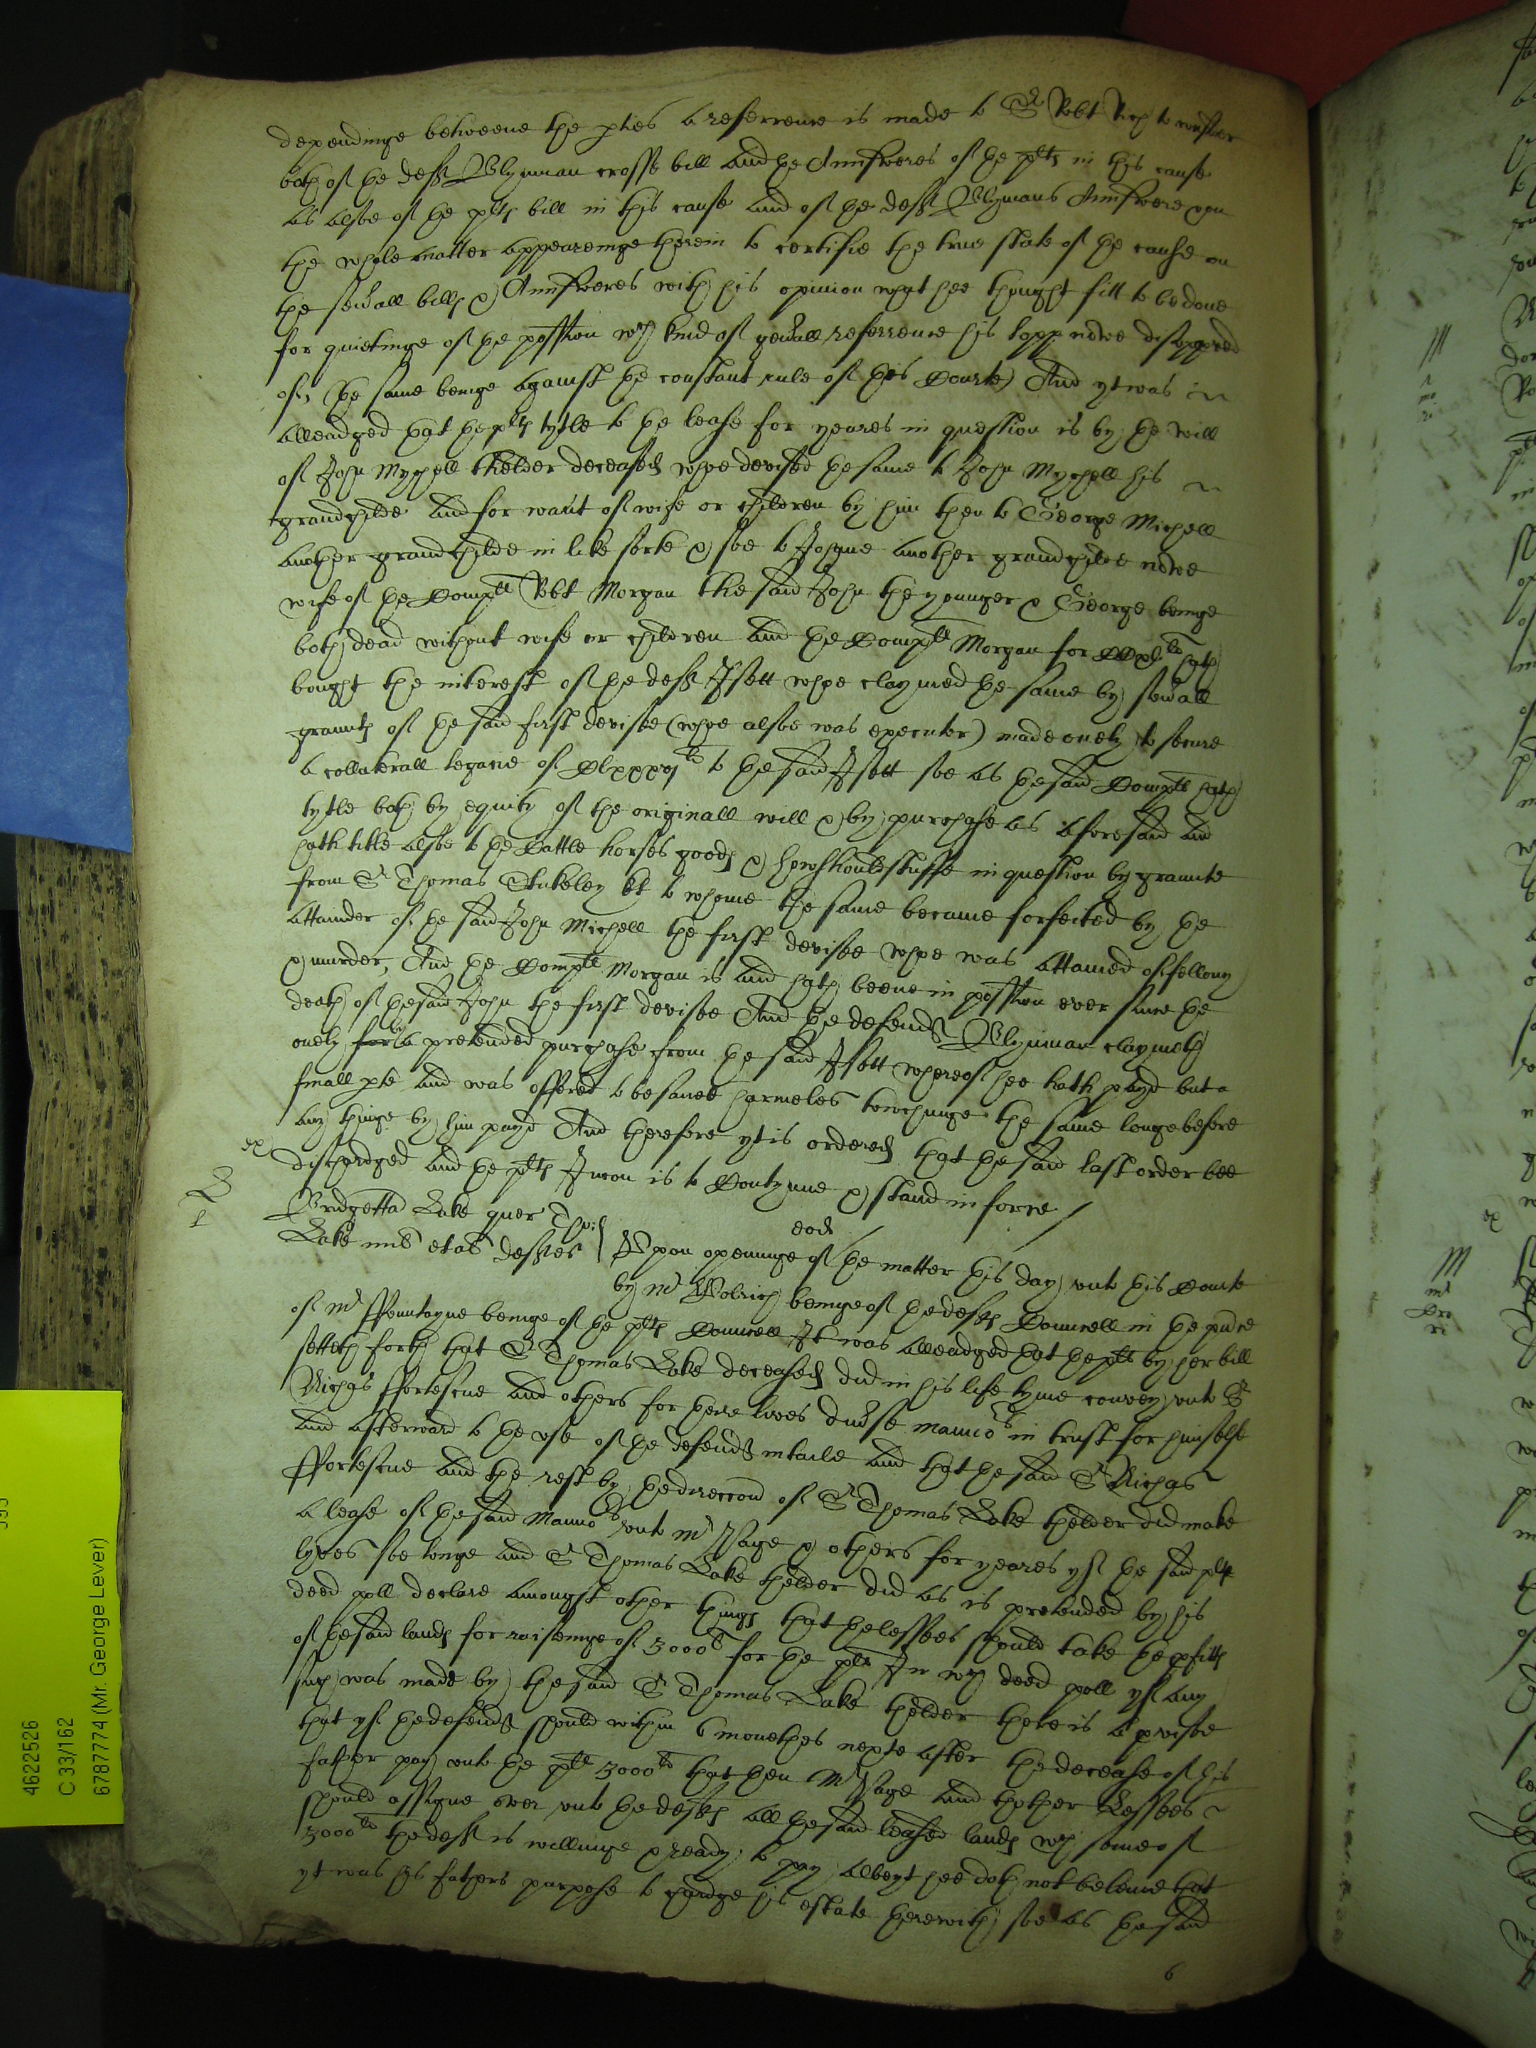 dependinge betweene the pties a referrence is made to Sr Robt Rich to consider
both of the deftes Wlynman crosse bill and the Annsweres of the pltes in this cause
as alsoe of the pltes bill in this cause and of the deft Wlymans Annswere vpon
the whole matter appearinge therein to certifie the true state of the cause on
the seuall billes & Annsweres with his opinion what hee thought fitt to be done
for quietinge of the possion wch kind of genall referrence his lopp nowe disapproved
of, the same beinge against the constant rule of this Courte, And yt was
alleadged that the pltes tytle to the lease for yeares in question is by the will
of John Mychell thelder deceased whoe devised the same to John Mychell his
grandchilde and for want of wife or children by him then to George Michell
another grandchilde in like sorte & soe to another grandchilde nowe
wife of the Complt Robt Morgan the said John the younger & George beinge
both dead without wife or children and the Complt Morgan for hath
bought the interest of the deft Isett whoe claymed the same by seuall
grauntes of the said first devisee (whoe alsoe was executor) made onely to secure
a collaterall legacie of to the said Isett soe as the said Complt hath
tytle both by equity of the originall will & by purchase as aforesaid and
hath title alsoe to the Cattle horses goodes & howshouldstuffe in question by graunte
from Sr Thomas Stukeley kt to whome the same became forfeited by the
attainder of the said John Michell the first devisee whoe was attainted of fellony
& murder, And the Complt Morgan is and hath beene in possion ever since the
death of the said John the first devisee And the defendt Wlynman claymeth
onely for by a pretended purchase from the said Isett whereof hee hath payd but a
small pte and was offered to be saved harmeles towchinge the same longe before
any thinge by him payd And therefore yt is ordered that the said last order bee
dischardged and the pltes Iniuncon is to Contynue & stand in force
ex
L
Bridgetta Lake quer Thos
Lake mil et al deftes
eod
Vpon openinge of the matter this day vnto this Courte
by Mr beinge of the deftes Councell in the pnce
of Mr Ffountayne beinge of the pltes Councell It was alleadged that the plt by her bill
setteth forth that Sr Thomas Lake deceased did in his life tyme convey vnto Sr
Nichas Ffortescue and others for theire lives diuse mannors in trust for himselfe
and afterward to the vse of the defendt intaile and that the said Sr Nichas
Ffortescue and the rest by the direccon of Sr Thomas Lake thelder did make
a lease of the said Mannors vnto Mr Page & others for yeares yf the said plt
lyves soe longe and Sr Thomas Lake thelder did as is pretended by his
deed poll declare amongst other thinges that the lessees should take the pfittes
of the said landes for raiseinge of 3000li for the plt In wch deed poll yf any
such was made by the said Sr Thomas Lake thelder there is a pvisoe
that yf the defendt should within 6 monethes nexte after the decease of his
father pay vnto the plt 3000li that then Mr Page and thother Lessees
should assigne over vnto the deftes all the said leased landes wch some of
3000li the deft is willinge & ready to pay albeyt hee doth not beleeve that
yt was his fathers purpose to chardge his estate therewith soe as the said
6
4622526
C 33/162
6787774 (Mr. George Lever)